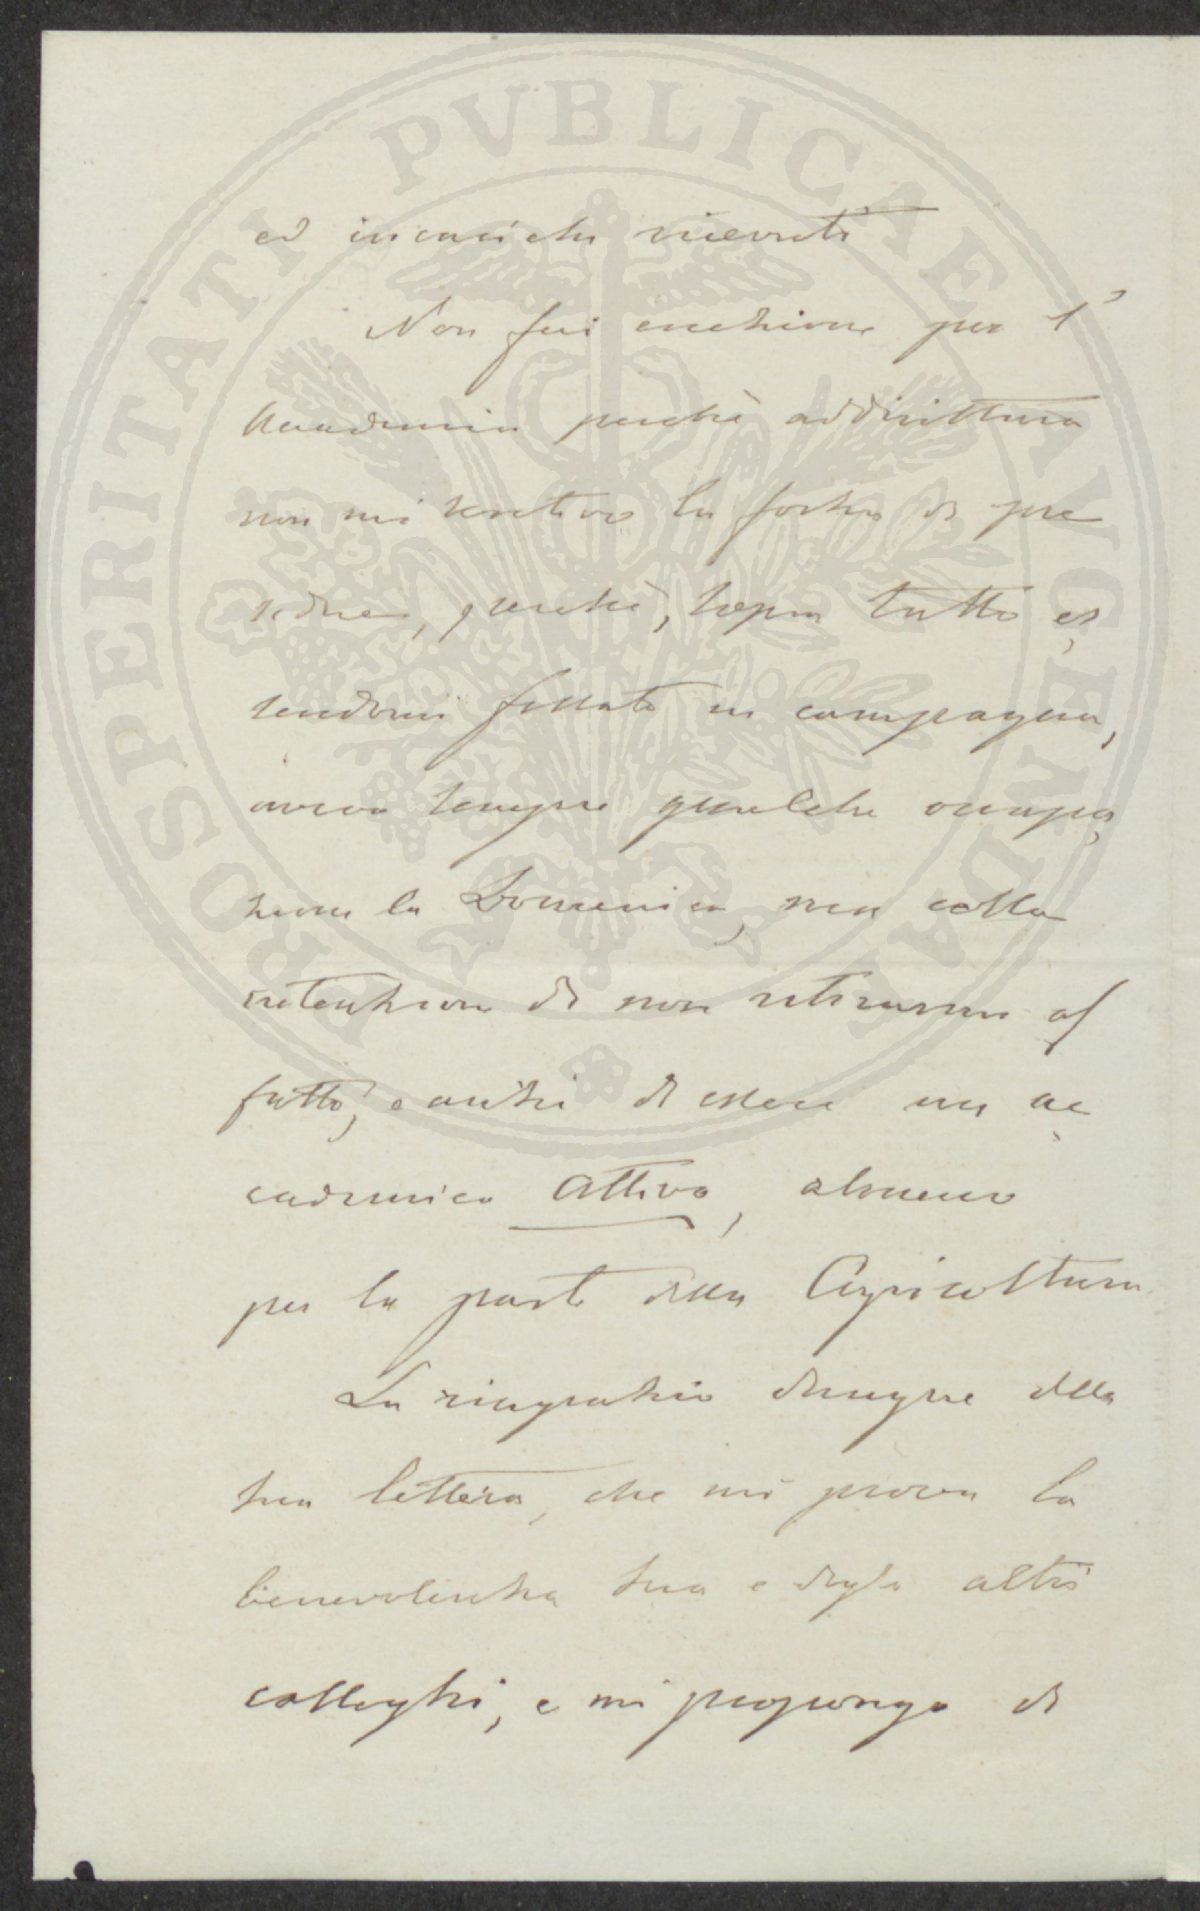 PROSPERITATI PVBLICAE AVGENDAE
ed incarichi ricevuti
Non feci eccezione per l'
Accademia perchè addirittura
non mi sentivo la forza di pre
siedere, perchè, sopra tutto es
sendomi fissato in campagna,
avevo sempre qualche occupa
zione la Domenica, ma colla
intenzione di non ritirarmi af
fatto, e anzi di essere un ac
cademico attivo, almeno
per la parte della Agricoltura
La ringrazio dunque della
sua lettera, che mi prova la
benevolenza sua e degli altri
colleghi, e mi propongo di